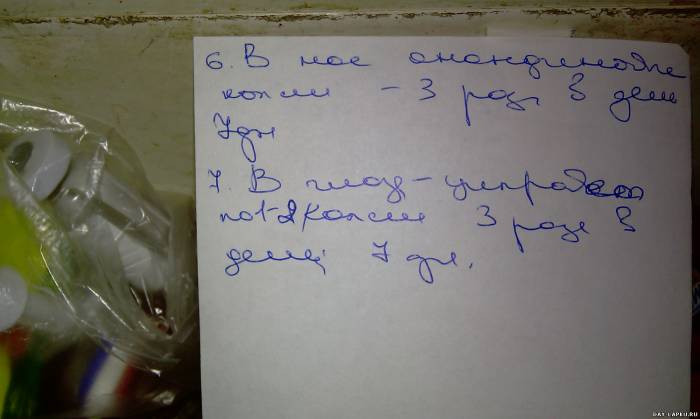 6. В нос анандиновые
капли – 3 раза в день
7 дн
7. В глаз – ципровет
по 1-2 капли 3 раза в
день, 7 дн.
DAY-LAPKU.RU